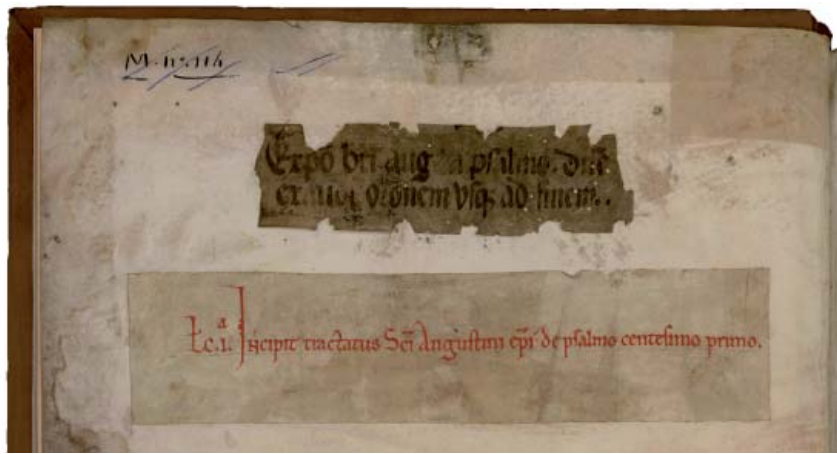 M. II. 114
Expō bt̄i aug a psalmo. dn̄e
exaudi or̄onem usq; ad finem.
Ł.c.1.ª Incipit tractatus Sc̄i Augustini ep̄i de psalmo centesimo primo.